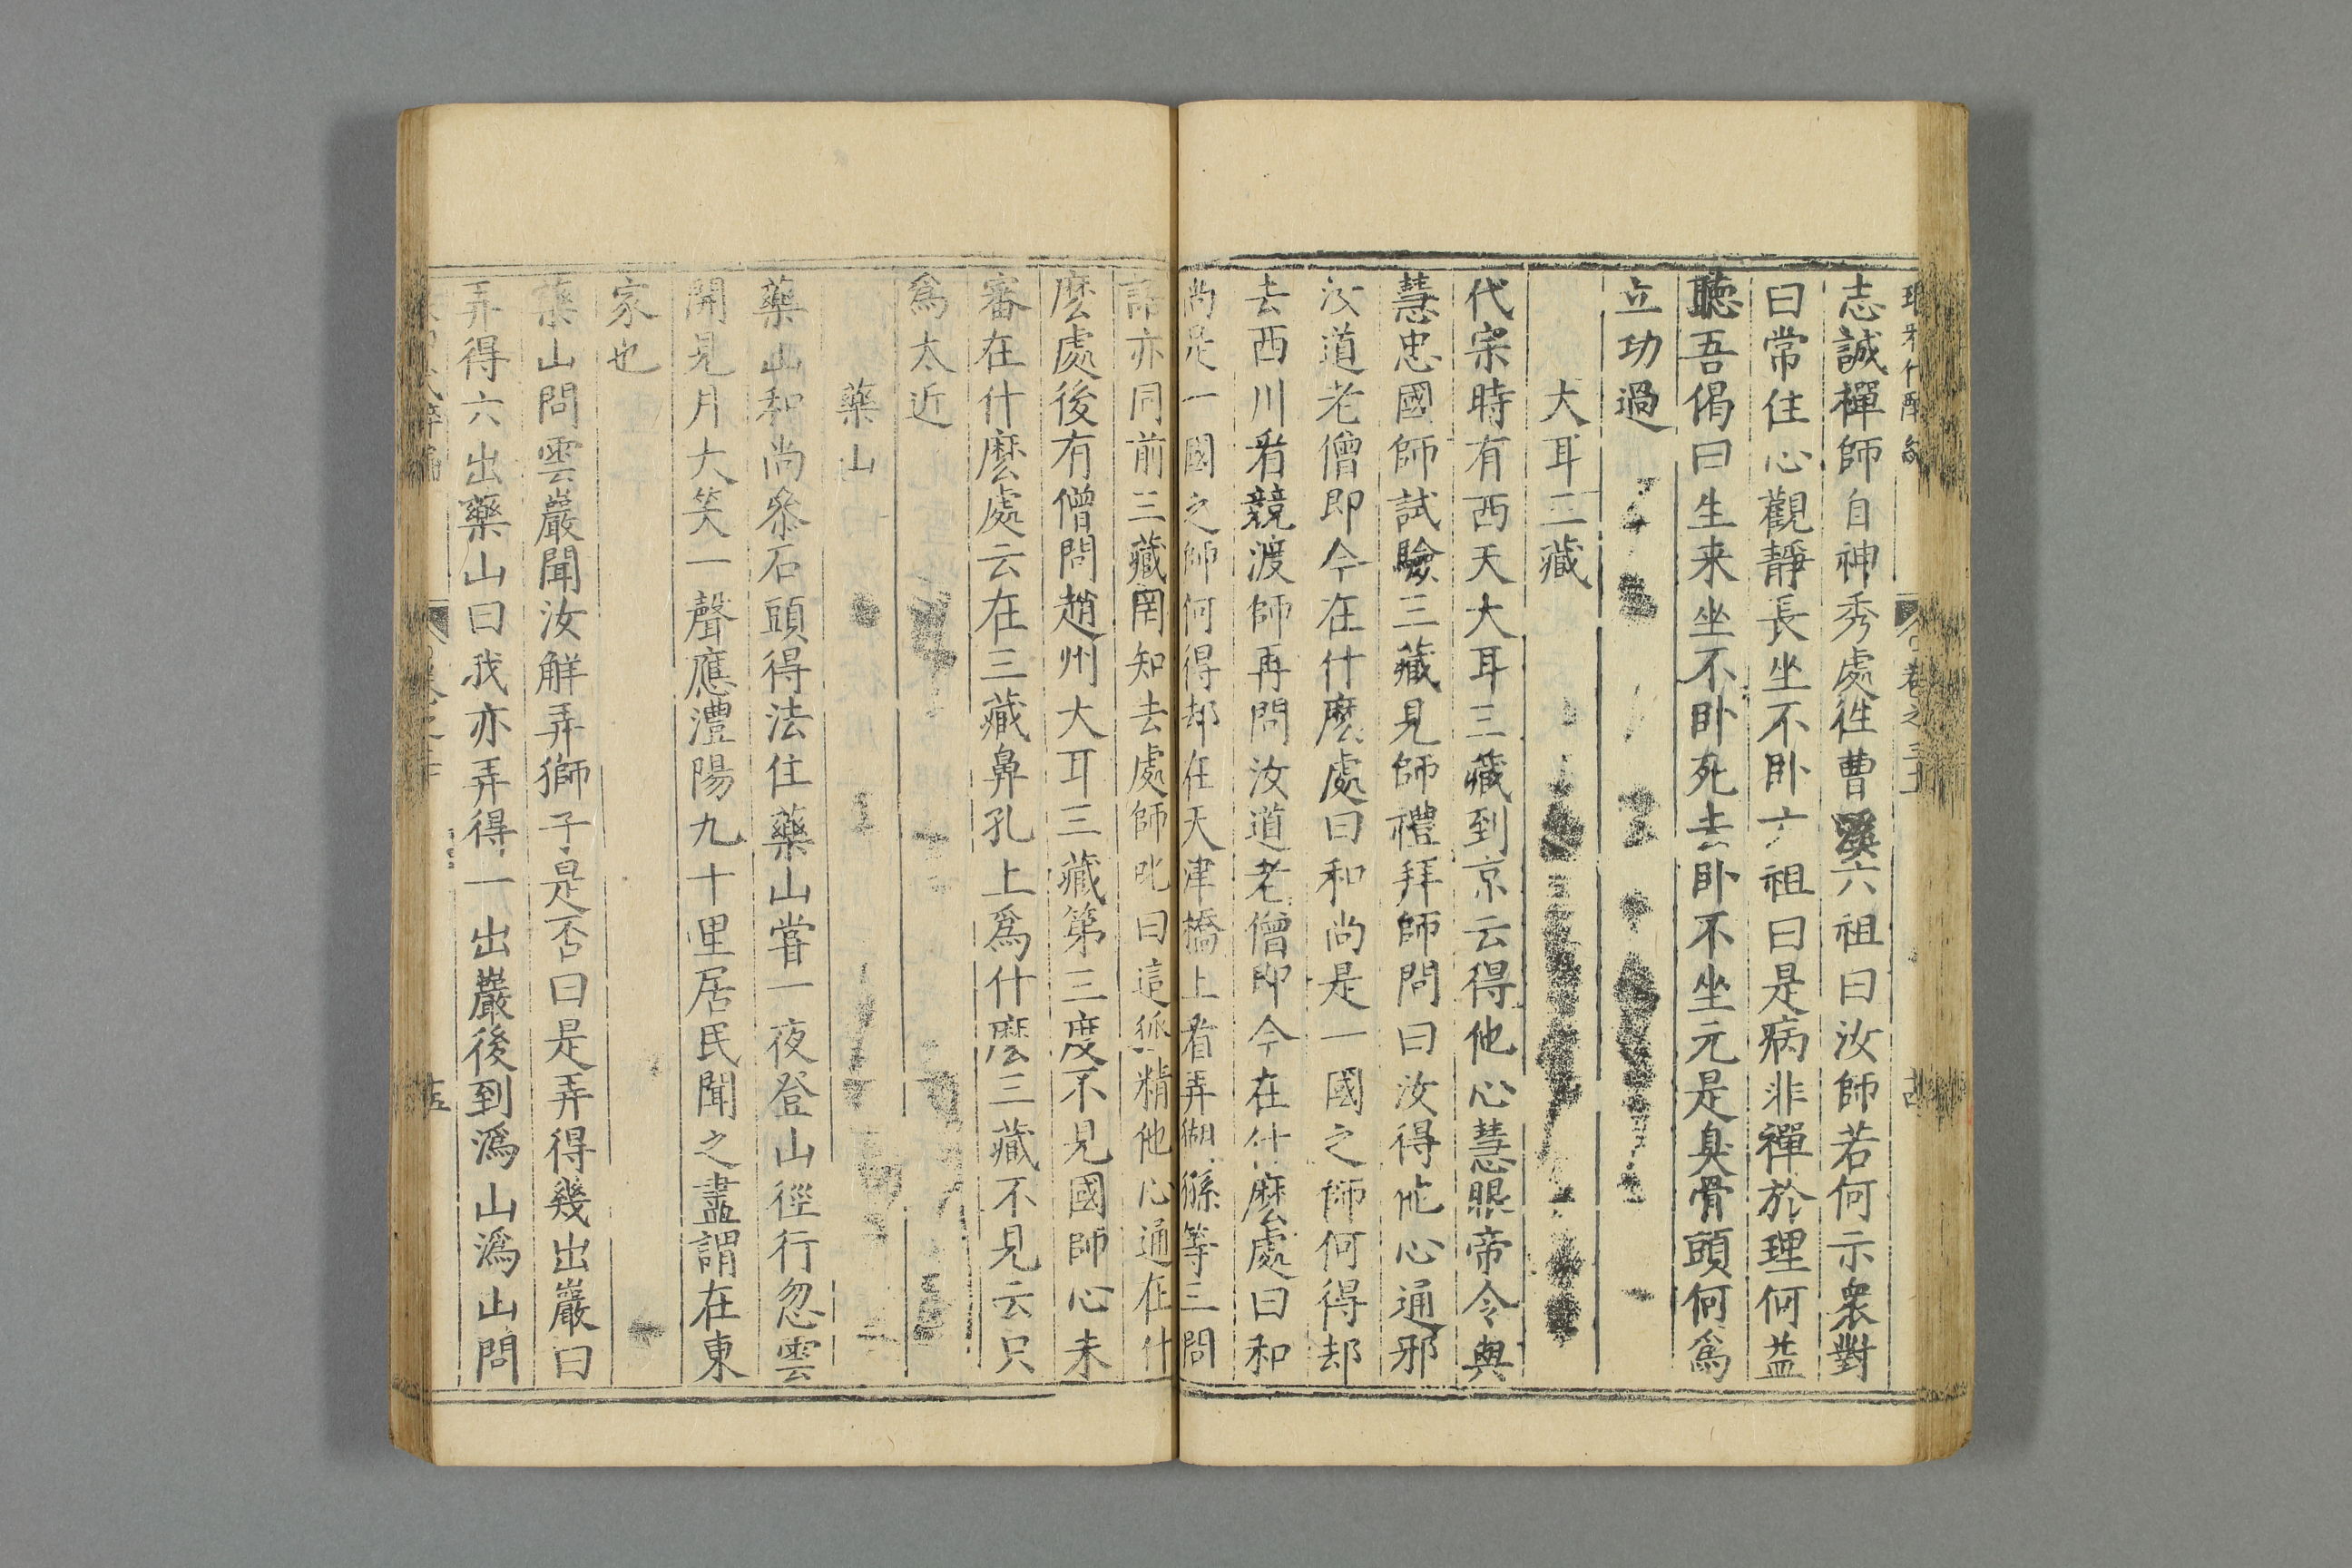 志誠禪師自神秀處徃曹溪六祖曰汝師若何示衆對
曰常住心觀靜長坐不卧六祖曰是病非禪於理何益
聽吾偈曰生来坐不卧死去卧不坐元是臭骨頭何爲
立功過
大耳三藏
代宗時有西天大耳三藏到京云得他心慧眼帝令與
慧忠國師試驗三藏見師禮拜師問曰汝得他心通邪
汝道老僧即今在什麽處曰和尚是一國之師何得却
去西川看競渡師再問汝道老僧即今在什麽處曰和
尚是一國之師何得却在天津橋上看弄猢猻等三問
語亦同前三藏罔知去處師叱曰這狐精他心通在什
麽處後有僧問趙州大耳三藏第三度不見國師心未
審在什麽處云在三藏鼻孔上爲什麽三藏不見云只
爲太近
藥山
藥山和尚叅石頭得法住藥山甞一夜登山徑行忽雲
開見月大笑一聲應澧陽九十里居民聞之盡謂在東
家也
藥山問雲巖聞汝解弄獅子是否曰是弄得幾出巖曰
弄得六出藥山曰我亦弄得一出巖後到潙山潙山問